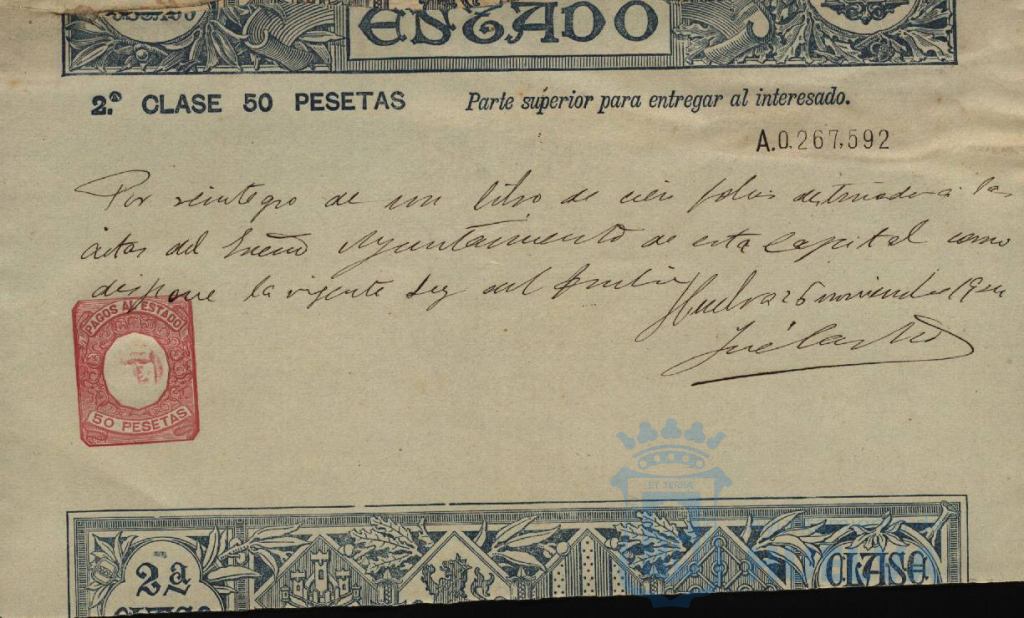 ESTADO
2.ª CLASE 50 PESETAS
Parte superior para entregar al interesado.
A.0.267,592
Por reintegro de un libro de cien folios destinado a las
actas del Excmo Ayuntamiento de esta Capital como
dispone la vigente Ley del Timbre
Huelva 26 noviembre
José
PAGOS AL ESTADO
50 PESETAS
ET TERRÆ
2.ª
CLASE
CLASE